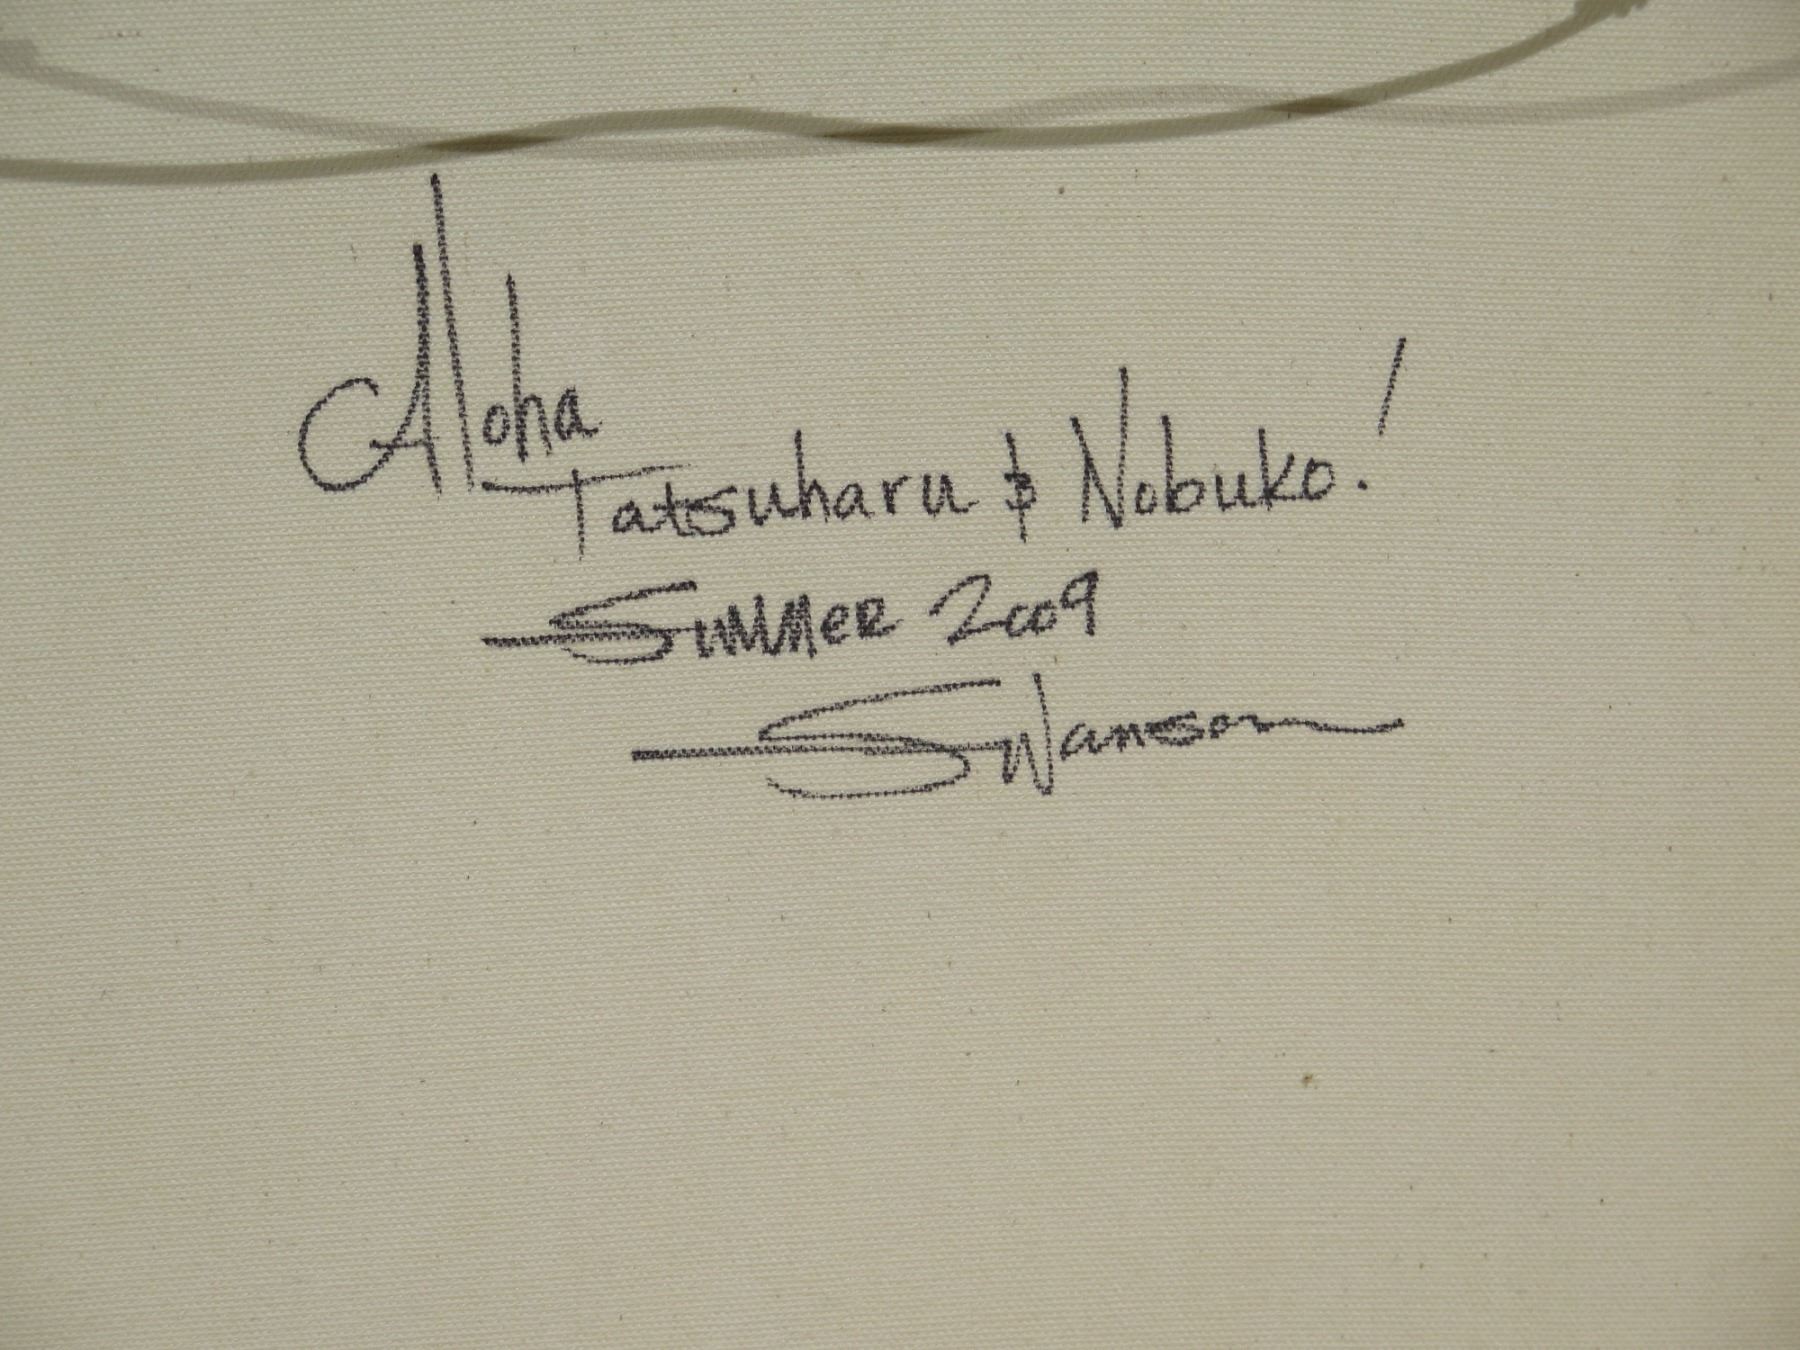 Aloha
Tatsuharu & Nobuko!
Summer 2009
Swanson